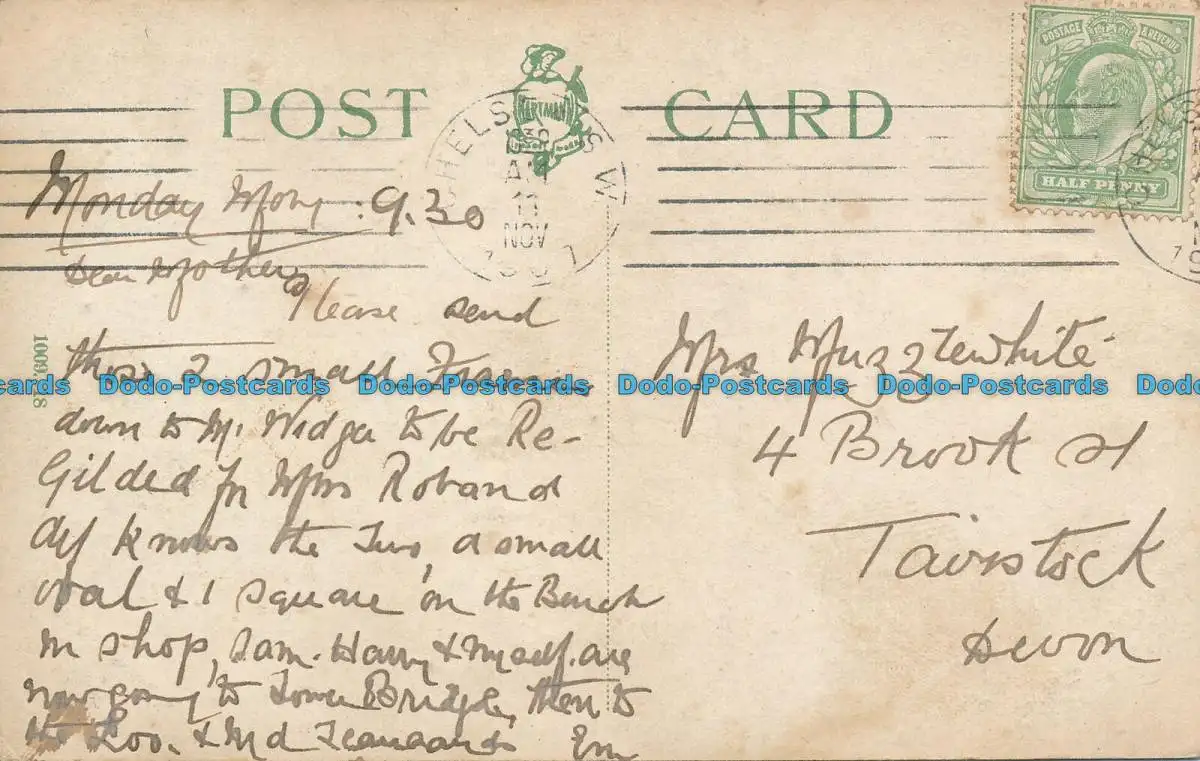 POST CARD
HARTMANN
CHELSEA S.W
10 30 AM
NOV
POSTAGE & REVENUE
HALF PENNY
Monday Morg : 9.30
Dear Mother
Please send
those 2 small Frames
down to Mr Widger to be Re-
Gilded for Mrs Roband
Alf knows the Two, a small
oval & 1 square on the Bench
in shop, Sam. Harry & myself are
now going to Tower Bridge, then to
the Zoo. & Md Teaudauds Em
Mrs Muzzlewhite
4 Brook St
Tavistock
Devon
Dodo-Postcards Dodo-Postcards Dodo-Postcards Dodo-Postcards Dodo-Postcards